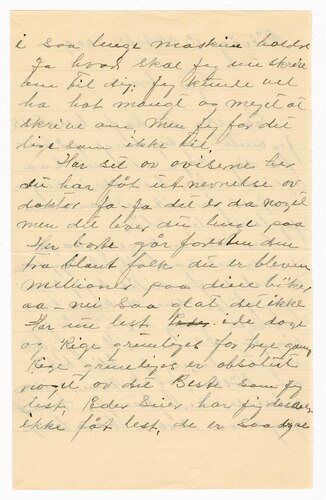 i saa lenge maskine holder
Ja hvad skal jeg nu skrive
om til dig. Jeg kunde vel
ha hat mangt og meget at
skrive om men jeg for det
lige som ikke til,
Har set ov aviserne her
du har fåt utnevnelse ov
doktor Ja-Ja det er da noget
men det lever du lenge paa
Her borte går foresten den
fra blant folk du er bleven
Millioner paa dine bøker
aa - nei saa glat det ikke
Har nu lest i de dage
og Rige grunliges for
Rige grunliges er absolut
noget ov det Beste som jeg
lest, Eders Sier har jeg
ikke fåt lest, de er saa dyre